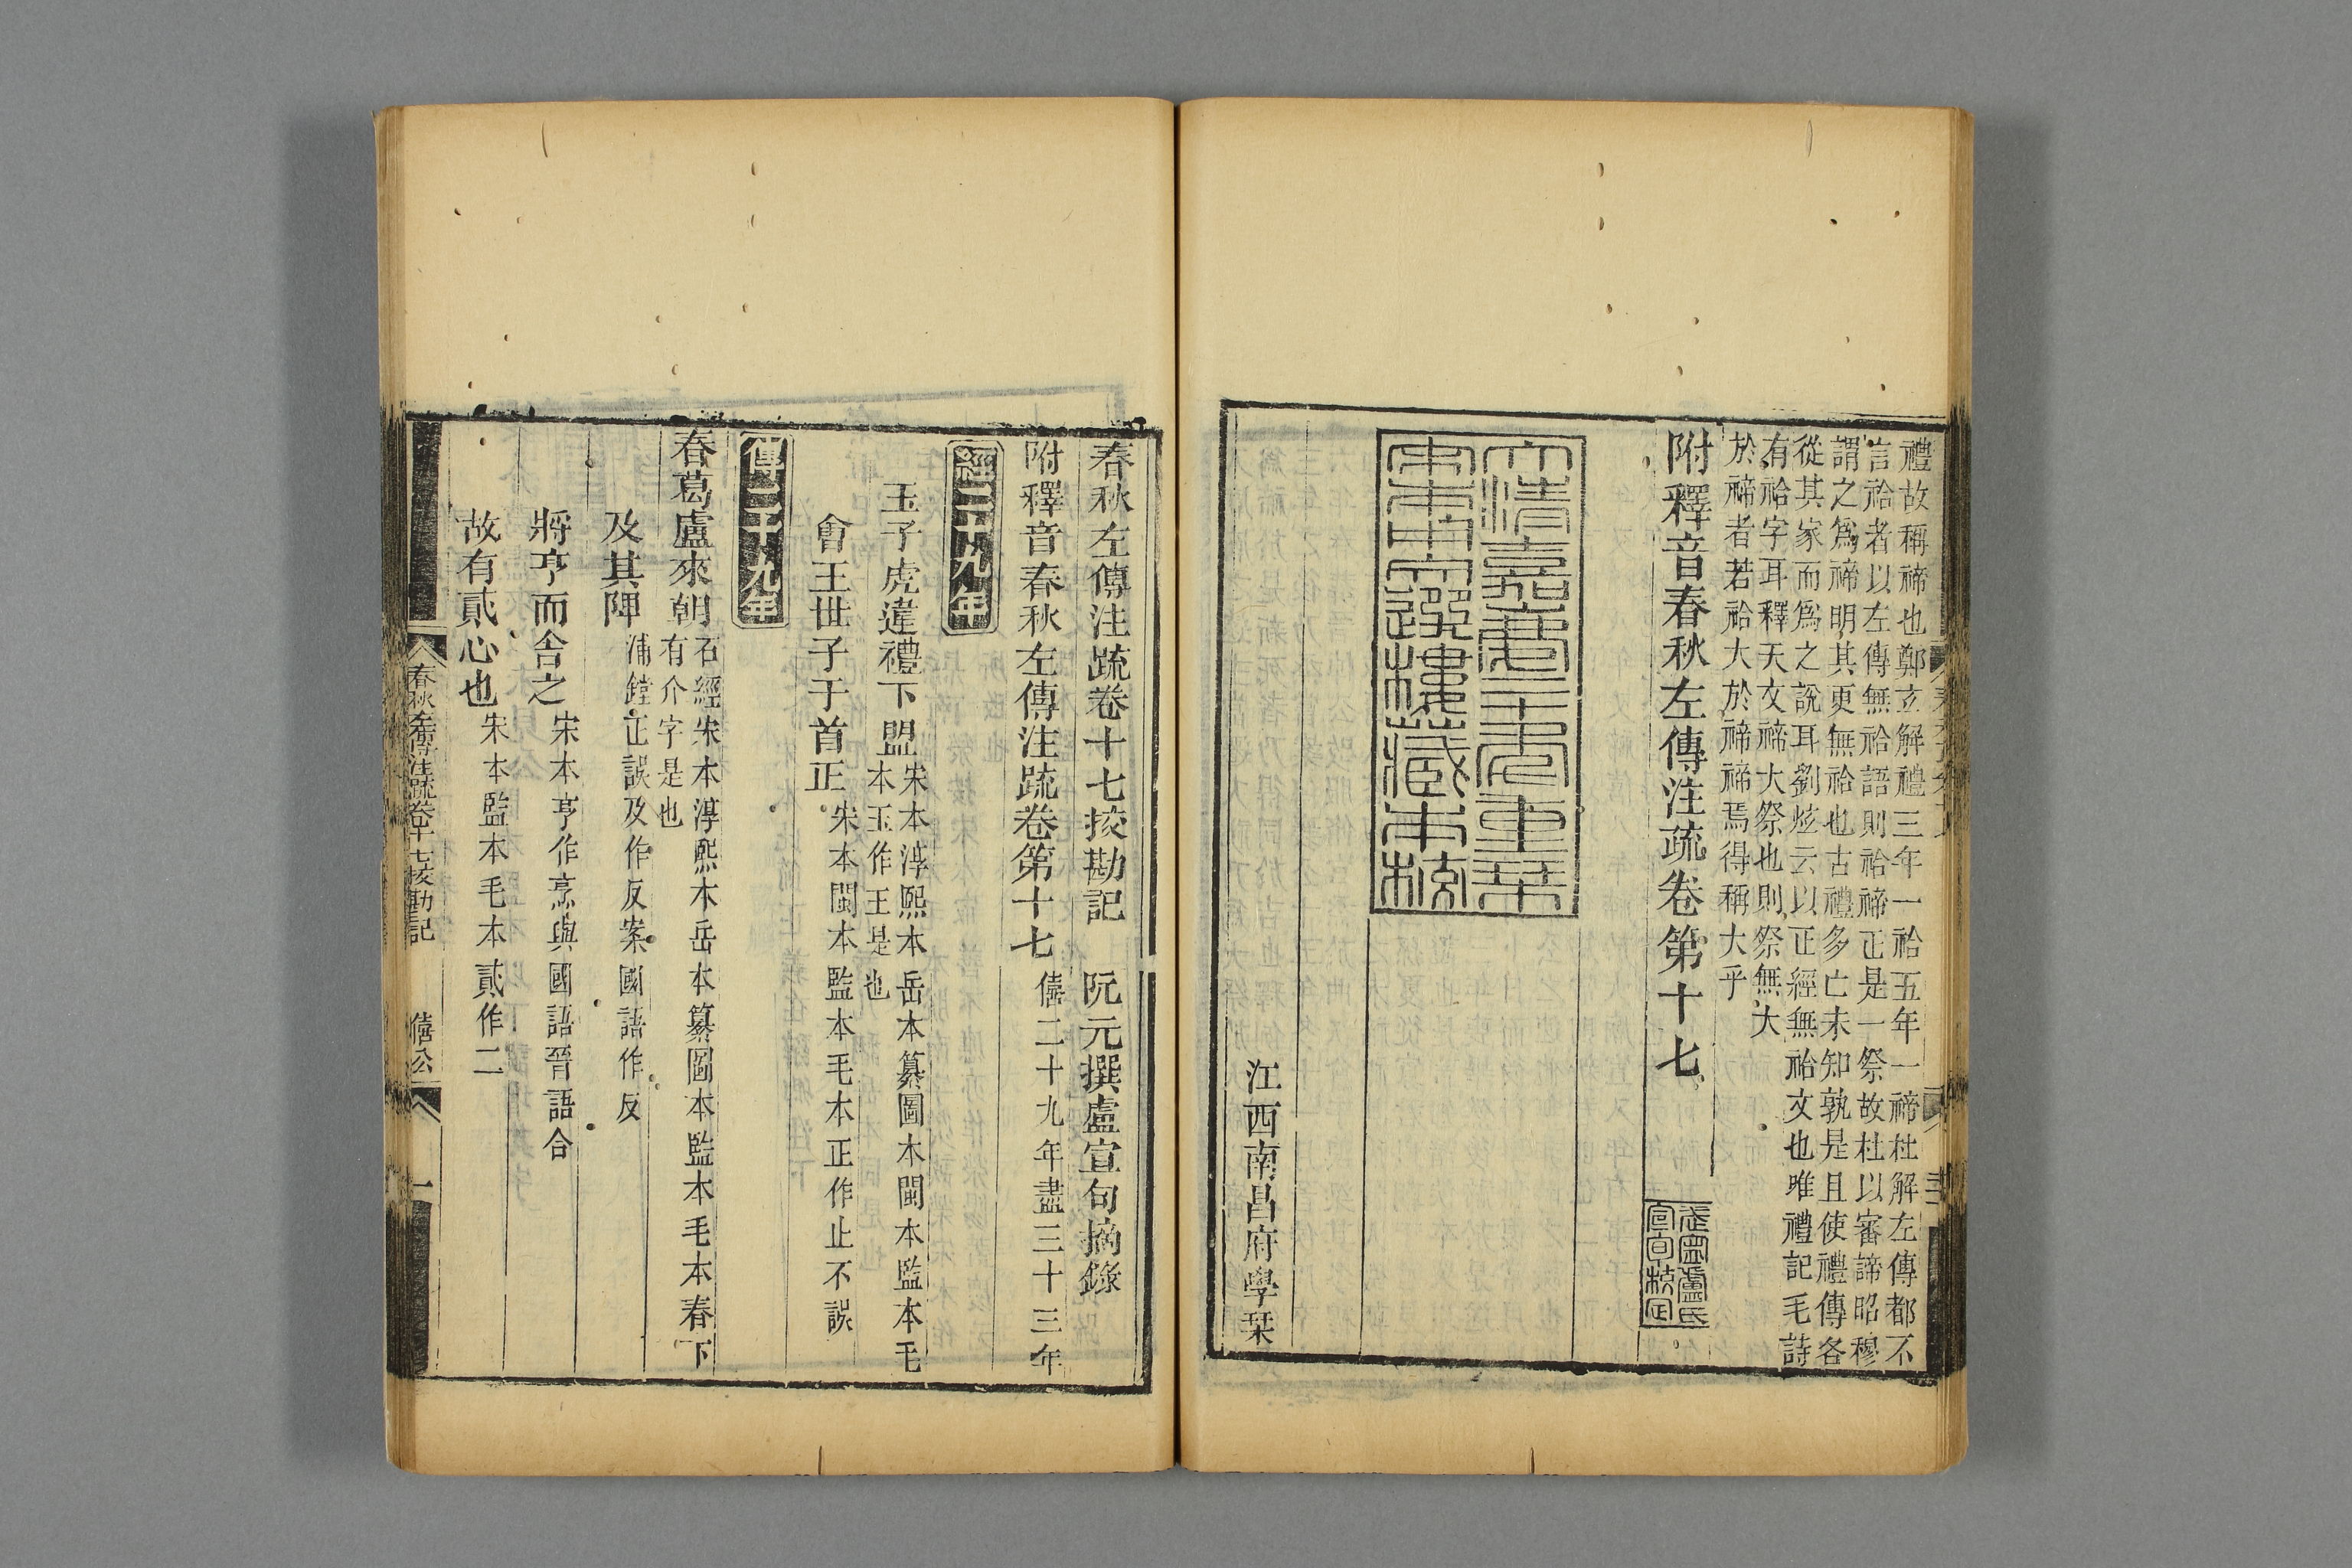 禮故稱禘也鄭玄解禮三年一祫五年一禘杜解左傳都不
言祫者以左傳無祫語則祫禘正是一祭故杜以審諦昭穆
謂之爲禘明其更無祫也古禮多亡未知孰是且使禮傳各
從其家而爲之說耳劉炫云以正經無祫文也唯禮記毛詩
有祫字耳釋天文禘大祭也則祭無大
於禘者若祫大於禘禘焉得稱大乎
附釋音春秋左傳注疏卷第十七
武寧盧氏
宣旬校定
大清嘉慶二十年重栞
宋本用文選樓藏本校
江西南昌府學栞
春秋左傳注疏卷十七挍勘記
阮元撰盧宣旬摘錄
附釋音春秋左傳注疏卷第十七
僖二十九年盡三十三年
經二十九年
王子虎違禮下盟
宋本淳熙本岳本纂圖本閩本監本毛
本玉作王是也
會王世子于首正
宋本閩本監本毛本正作止不誤
傳二十九年
春葛盧來朝
石經宋本淳熙本岳本纂圖本監本毛本春下
有介字是也
及其陣
浦鏜正誤及作反案國語作反
將亨而舍之
宋本亨作烹與國語晉語合
故有貳心也
宋本監本毛本貳作二
春秋左傳注疏卷十七挍勘記
僖公
一